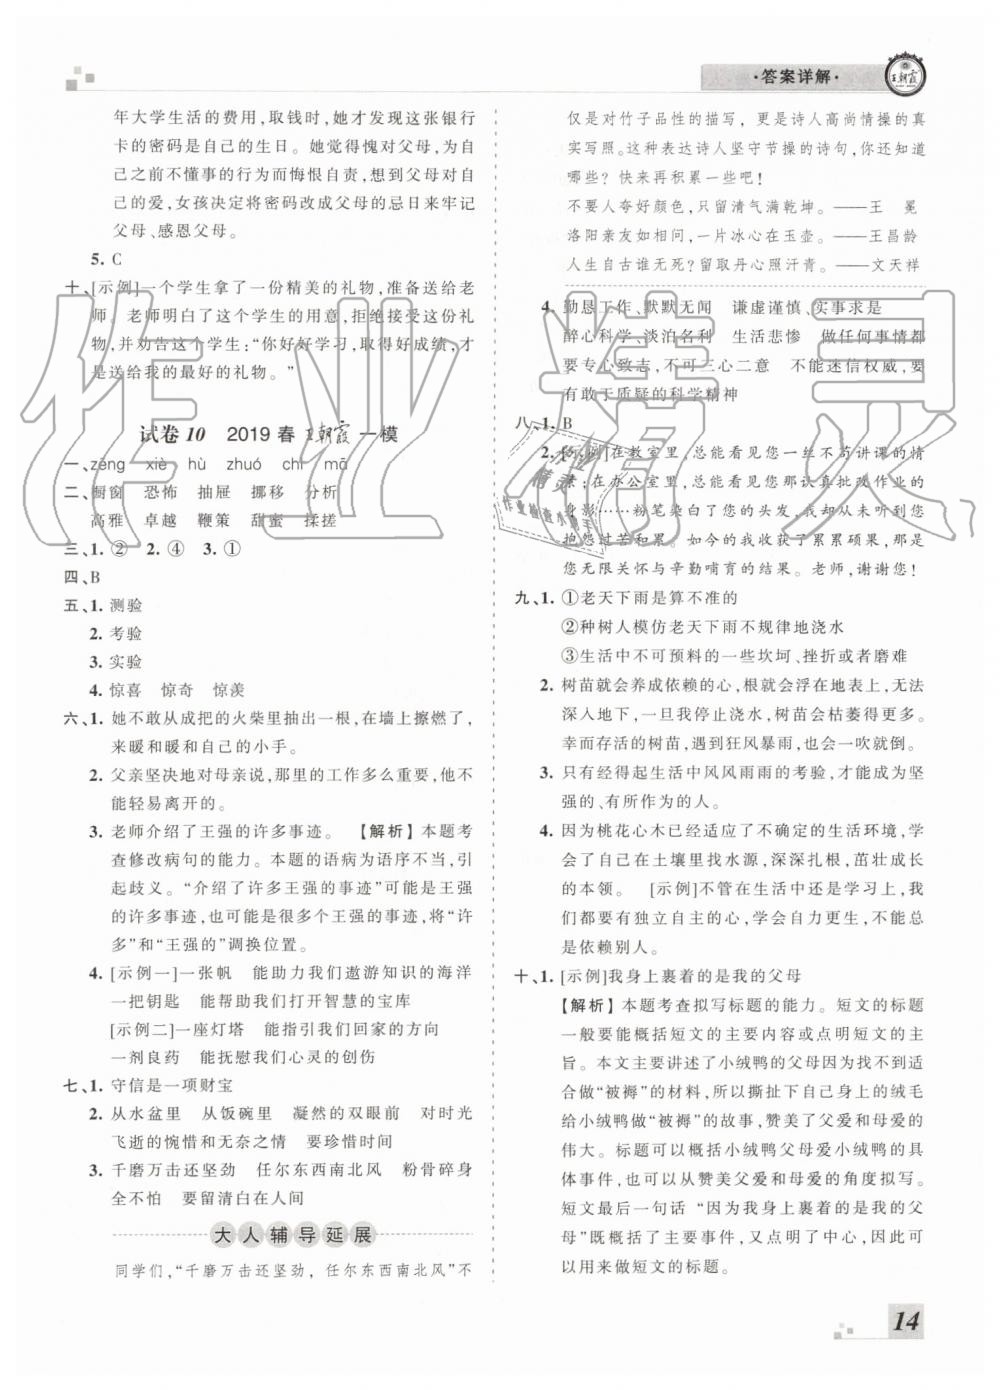 ·答案详解·
王朝霞
年大学生活的费用,取钱时,她才发现这张银行
卡的密码是自己的生日。她觉得愧对父母,为自
己之前不懂事的行为而悔恨自责,想到父母对自
己的爱,女孩决定将密码改成父母的忌日来牢记
父母、感恩父母。
5. C
十、[示例]一个学生拿了一份精美的礼物,准备送给老
师。老师明白了这个学生的用意,拒绝接受这份礼
物,并劝告这个学生:“你好好学习,取得好成绩,才
是送给我的最好的礼物。”
试卷10 2019春 王朝霞 一模
一、zēng xiè hù zhuó chì mā
二、橱窗 恐怖 抽屉 挪移 分析
高雅 卓越 鞭策 甜蜜 揉搓
三、1. ② 2. ④ 3. ①
四、B
五、1. 测验
2. 考验
3. 实验
4. 惊喜 惊奇 惊羡
六、1. 她不敢从成把的火柴里抽出一根,在墙上擦燃了,
来暖和暖和自己的小手。
2. 父亲坚决地对母亲说,那里的工作多么重要,他不
能轻易离开的。
3. 老师介绍了王强的许多事迹。 【解析】本题考
查修改病句的能力。本题的语病为语序不当,引
起歧义。“介绍了许多王强的事迹”可能是王强
的许多事迹,也可能是很多个王强的事迹,将“许
多”和“王强的”调换位置。
4. [示例一]一张帆 能助力我们遨游知识的海洋
一把钥匙 能帮助我们打开智慧的宝库
[示例二]一座灯塔 能指引我们回家的方向
一剂良药 能抚慰我们心灵的创伤
七、1. 守信是一项财宝
2. 从水盆里 从饭碗里 凝然的双眼前 对时光
飞逝的惋惜和无奈之情 要珍惜时间
3. 千磨万击还坚劲 任尔东西南北风 粉骨碎身
全不怕 要留清白在人间
大人辅导延展
同学们,“千磨万击还坚劲,任尔东西南北风”不
仅是对竹子品性的描写,更是诗人高尚情操的真
实写照。这种表达诗人坚守节操的诗句,你知道
哪些?快来再积累一些吧!
不要人夸好颜色,只留清气满乾坤。——王 冕
洛阳亲友如相问,一片冰心在玉壶。——王昌龄
人生自古谁无死?留取丹心照汗青。——文天祥
4. 勤恳工作、默默无闻 谦虚谨慎、实事求是
醉心科学、淡泊名利 生活悲惨 做任何事情都
要专心致志,不可三心二意 不能迷信权威,要
有敢于质疑的科学精神
八、1. B
2. [示例]在教室里,总能看见您一丝不苟讲课的情
景;在办公室里,总能看见您那认真批改作业的
身影……粉笔染白了您的头发,我却从未听到您
抱怨过苦和累。如今的我收获了累累硕果,那是
您无限关怀与辛勤哺育的结果。老师,谢谢您!
九、1. ①老天下雨是算不准的
②种树人模仿老天下雨不规律地浇水
③生活中不可预料的一些坎坷、挫折或者磨难
2. 树苗就会养成依赖的心,根就会浮在地表上,无法
深入地下,一旦我停止浇水,树苗会枯萎得更多。
幸而存活的树苗,遇到狂风暴雨,也会一吹就倒。
3. 只有经得起生活中风风雨雨的考验,才能成为坚
强的、有所作为的人。
4. 因为桃花心木已经适应了不确定的生活环境,学
会了自己在土壤里找水源,深深扎根,茁壮成长
的本领。 [示例]不管在生活中还是学习上,我
们都要有独立自主的心,学会自力更生,不能总
是依赖别人。
十、1. [示例]我身上裹着的是我的父母
【解析】本题考查拟写标题的能力。短文的标题
一般要能概括短文的主要内容或点明短文的主
旨。本文主要讲述了小绒鸭的父母因为找不到适
合做“被褥”的材料,所以撕扯下自己身上的绒毛
给小绒鸭做“被褥”的故事,赞美了父爱和母爱的
伟大。标题可以概括小绒鸭父母爱小绒鸭的具
体事件,也可以从赞美父爱和母爱的角度拟写。
短文最后一句话“因为我身上裹着的是我的父
母”既概括了主要事件,又点明了中心,因此可
以用来做短文的标题。
14
作业精灵
作业精灵
作业检查小帮手